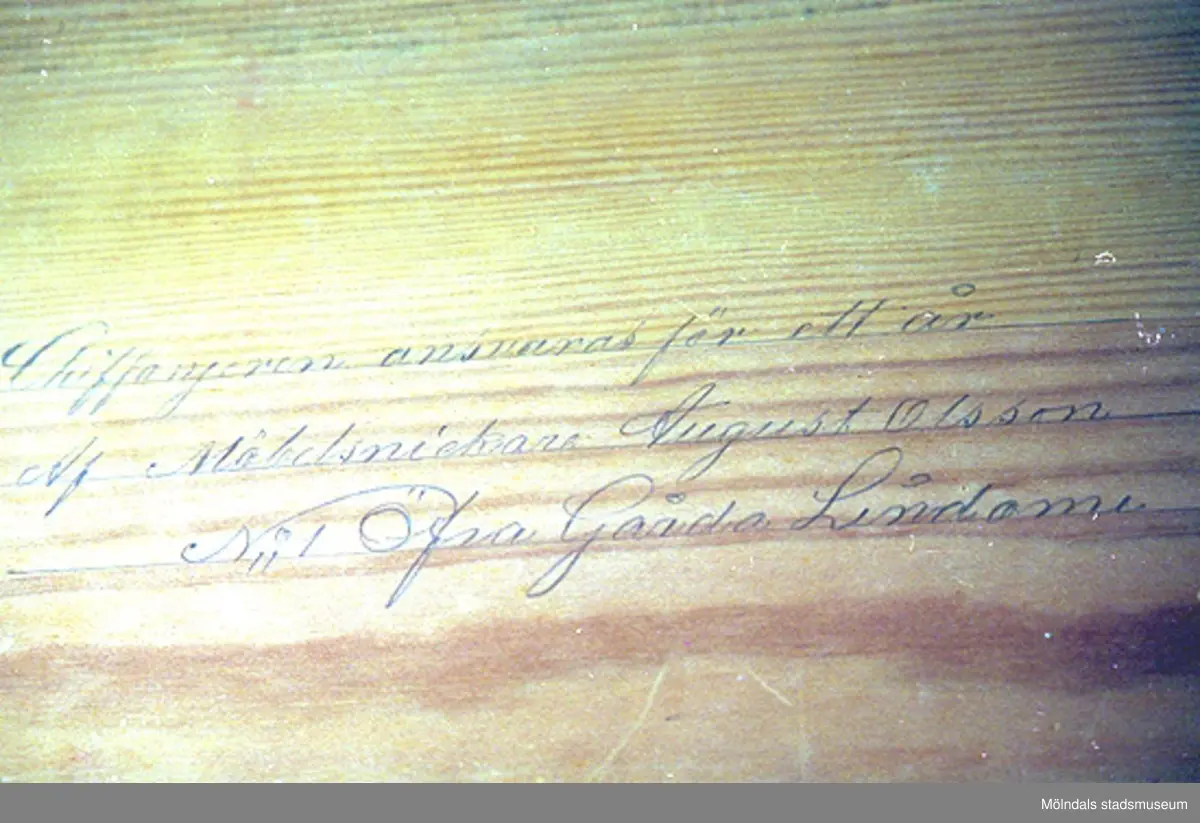 Chiffonjeren ansvaras för ett år
Af Möbelsnickare August Olsson
N:1 Öfra Gårda Lindome
Mölndals stadsmuseum